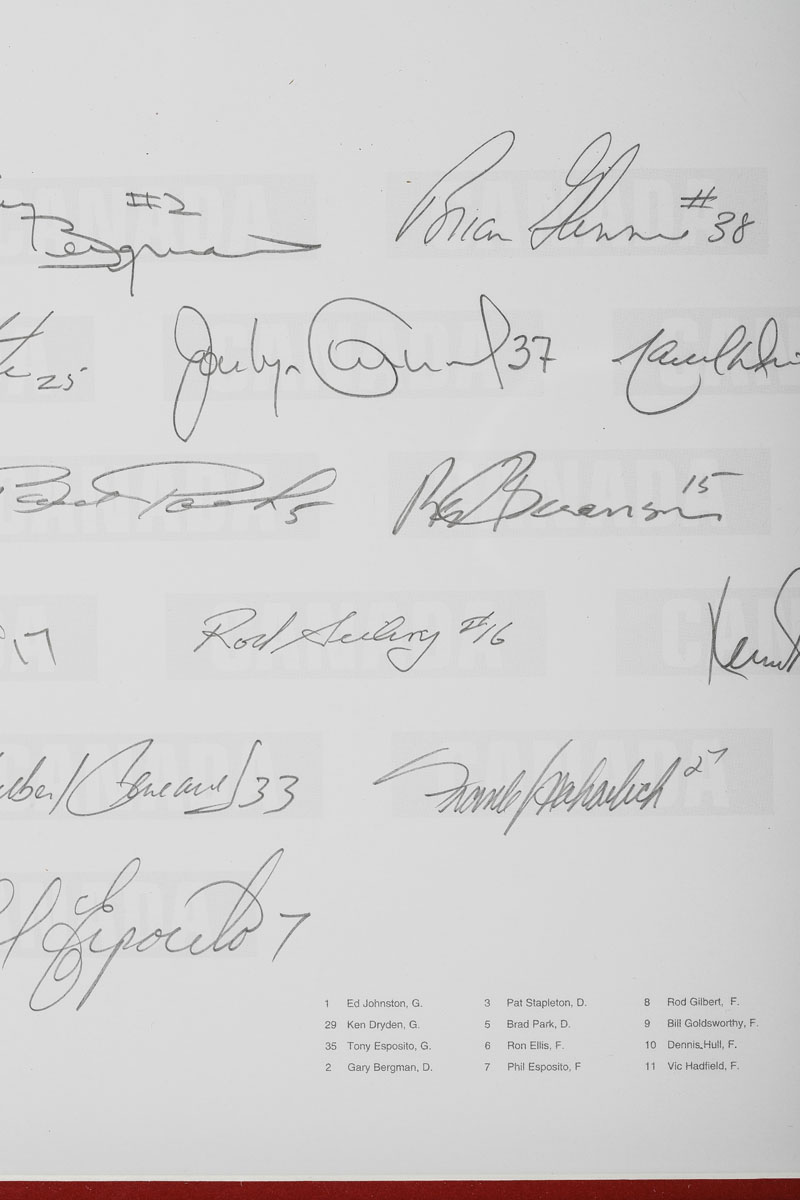 #2
Bergman
Brian Glennie #38
25
Jocelyn Guevremont 37
Brad Park 5
Red Berenson 15
17
Rod Seiling #16
33
Frank Mahovlich 27
Esposito 7
1 Ed Johnston, G. 3 Pat Stapleton, D. 8 Rod Gilbert, F.
29 Ken Dryden, G. 5 Brad Park, D. 9 Bill Goldsworthy, F.
35 Tony Esposito, G. 6 Ron Ellis, F. 10 Dennis Hull, F.
2 Gary Bergman, D. 7 Phil Esposito, F 11 Vic Hadfield, F.